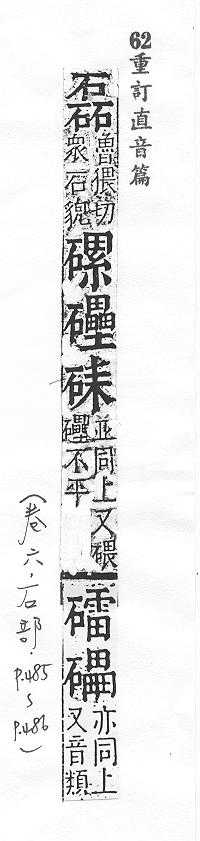 62重訂直音篇
磊魯猥切衆石貌磥礨並同上又碨礨不平礌亦同上又音類
(卷六.石部.P.485~P.486)